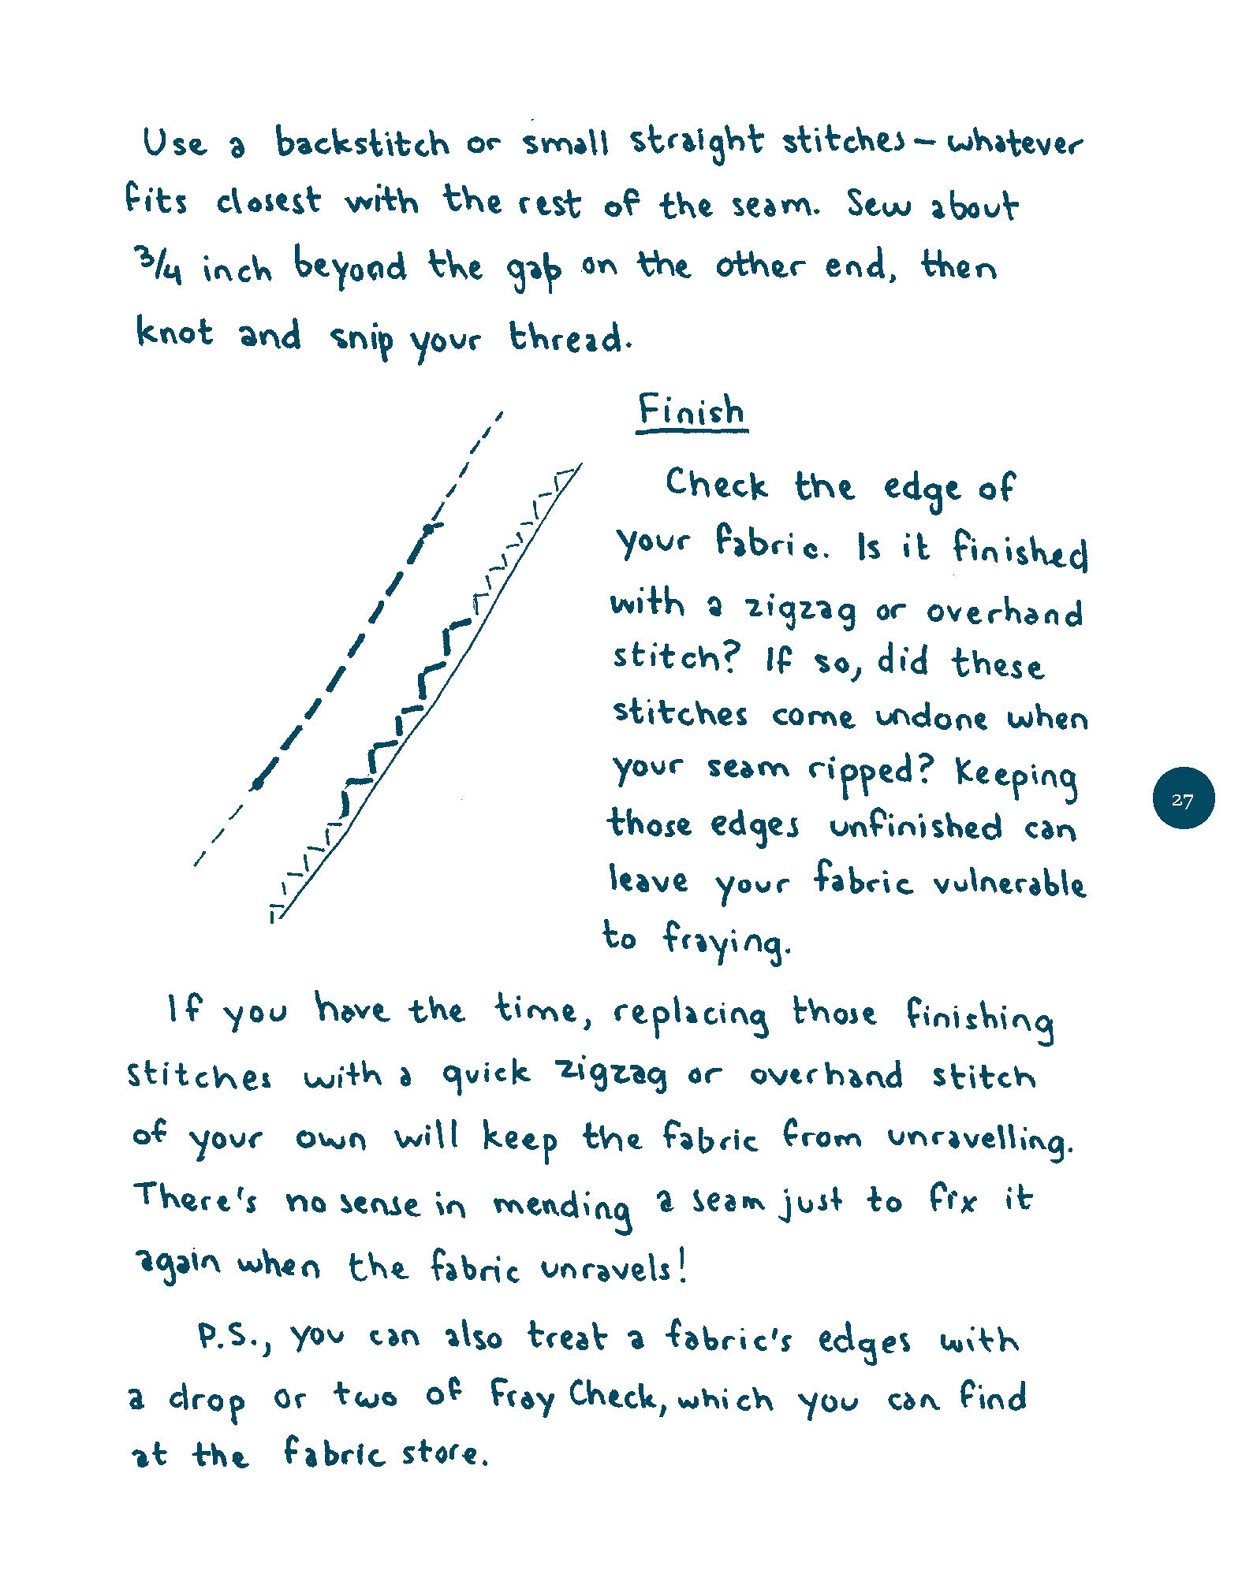 Use a backstitch or small straight stitches – whatever
fits closest with the rest of the seam. Sew about
3/4 inch beyond the gap on the other end, then
knot and snip your thread.
Finish
Check the edge of
your fabric. Is it finished
with a zigzag or overhand
stitch? If so, did these
stitches come undone when
your seam ripped? Keeping
those edges unfinished can
leave your fabric vulnerable
to fraying.
27
If you have the time, replacing those finishing
stitches with a quick zigzag or overhand stitch
of your own will keep the fabric from unravelling.
There's no sense in mending a seam just to fix it
again when the fabric unravels!
P.S., you can also treat a fabric's edges with
a drop or two of Fray Check, which you can find
at the fabric store.